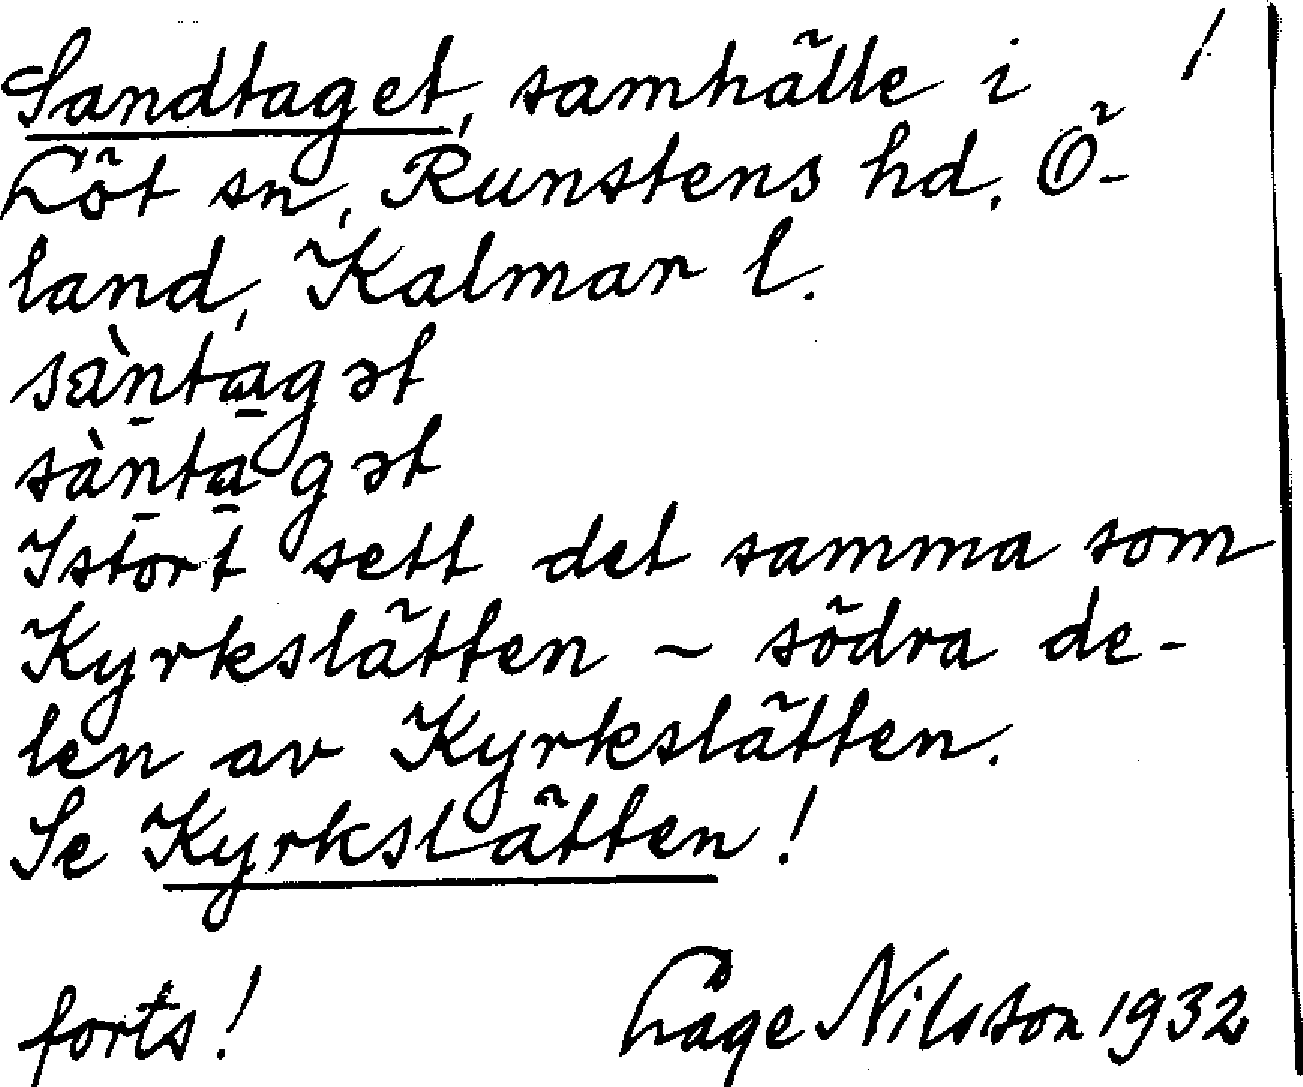 Sandtaget, samhälle i 1.
Löt sn, Runstens hd. Ö-
land, Kalmar l.
sàn̠ta̠gət
sàn̠ta̠gət
I stort sett det samma som
Kyrkslätten ~ södra de-
len av Kyrkslätten.
Se Kyrkslätten!
forts! Låge Nilsson 1932